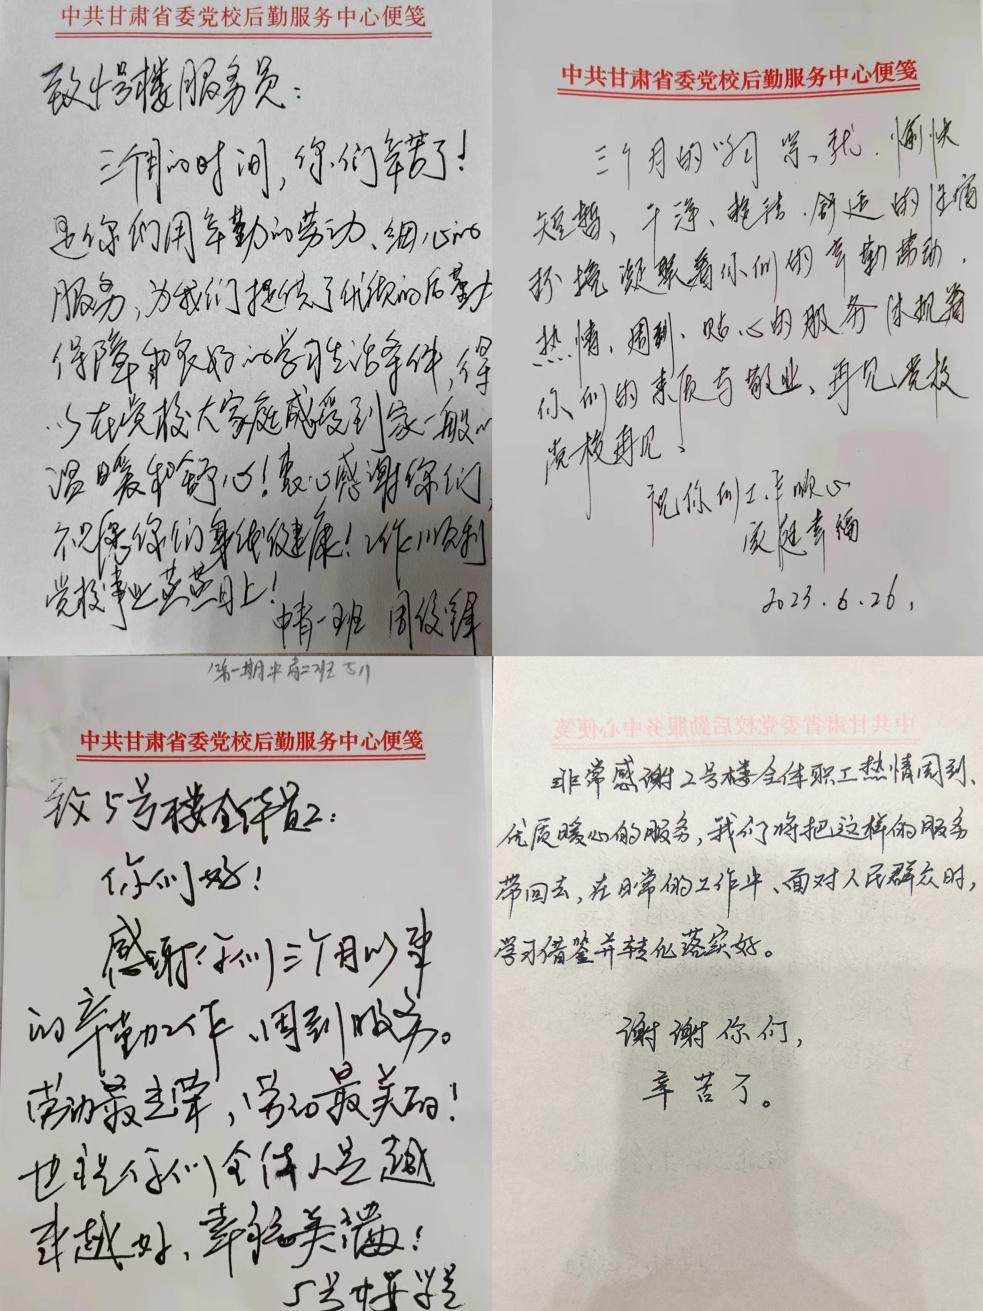 中共甘肃省委党校后勤服务中心便笺
致1号楼服务员：
三个月的时间，你们辛苦了！
是你们用辛勤的劳动、细心的
服务，为我们提供了优质的后勤
保障和良好的学习生活条件，得
以在党校大家庭感受到家一般的
温暖和舒心！衷心感谢你们，
祝愿你们身体健康！工作顺利
党校事业蒸蒸日上！
中青一班 周俊锋
中共甘肃省委党校后勤服务中心便笺
三个月的学习 愉快
短暂、干净、整洁、舒适的住宿
环境凝聚着你们的辛勤劳动，
热情、周到、贴心的服务体现着
你们的素质与敬业、再见党校
党校再见、
祝你们工作顺心
家庭幸福
2023.6.26,
第一期中青二班
中共甘肃省委党校后勤服务中心便笺
致5号楼全体员工：
你们好！
感谢你们三个月以来
的辛勤工作、周到服务。
劳动最光荣，劳动最美丽！
也祝你们全体人员越
来越好，幸福美满！
5号楼学员
中共甘肃省委党校后勤服务中心便笺
非常感谢2号楼全体职工热情周到、
优质暖心的服务，我们将把这样的服务
带回去，在日常的工作中、面对人民群众时，
学习借鉴并转化落实好。
谢谢你们，
辛苦了。